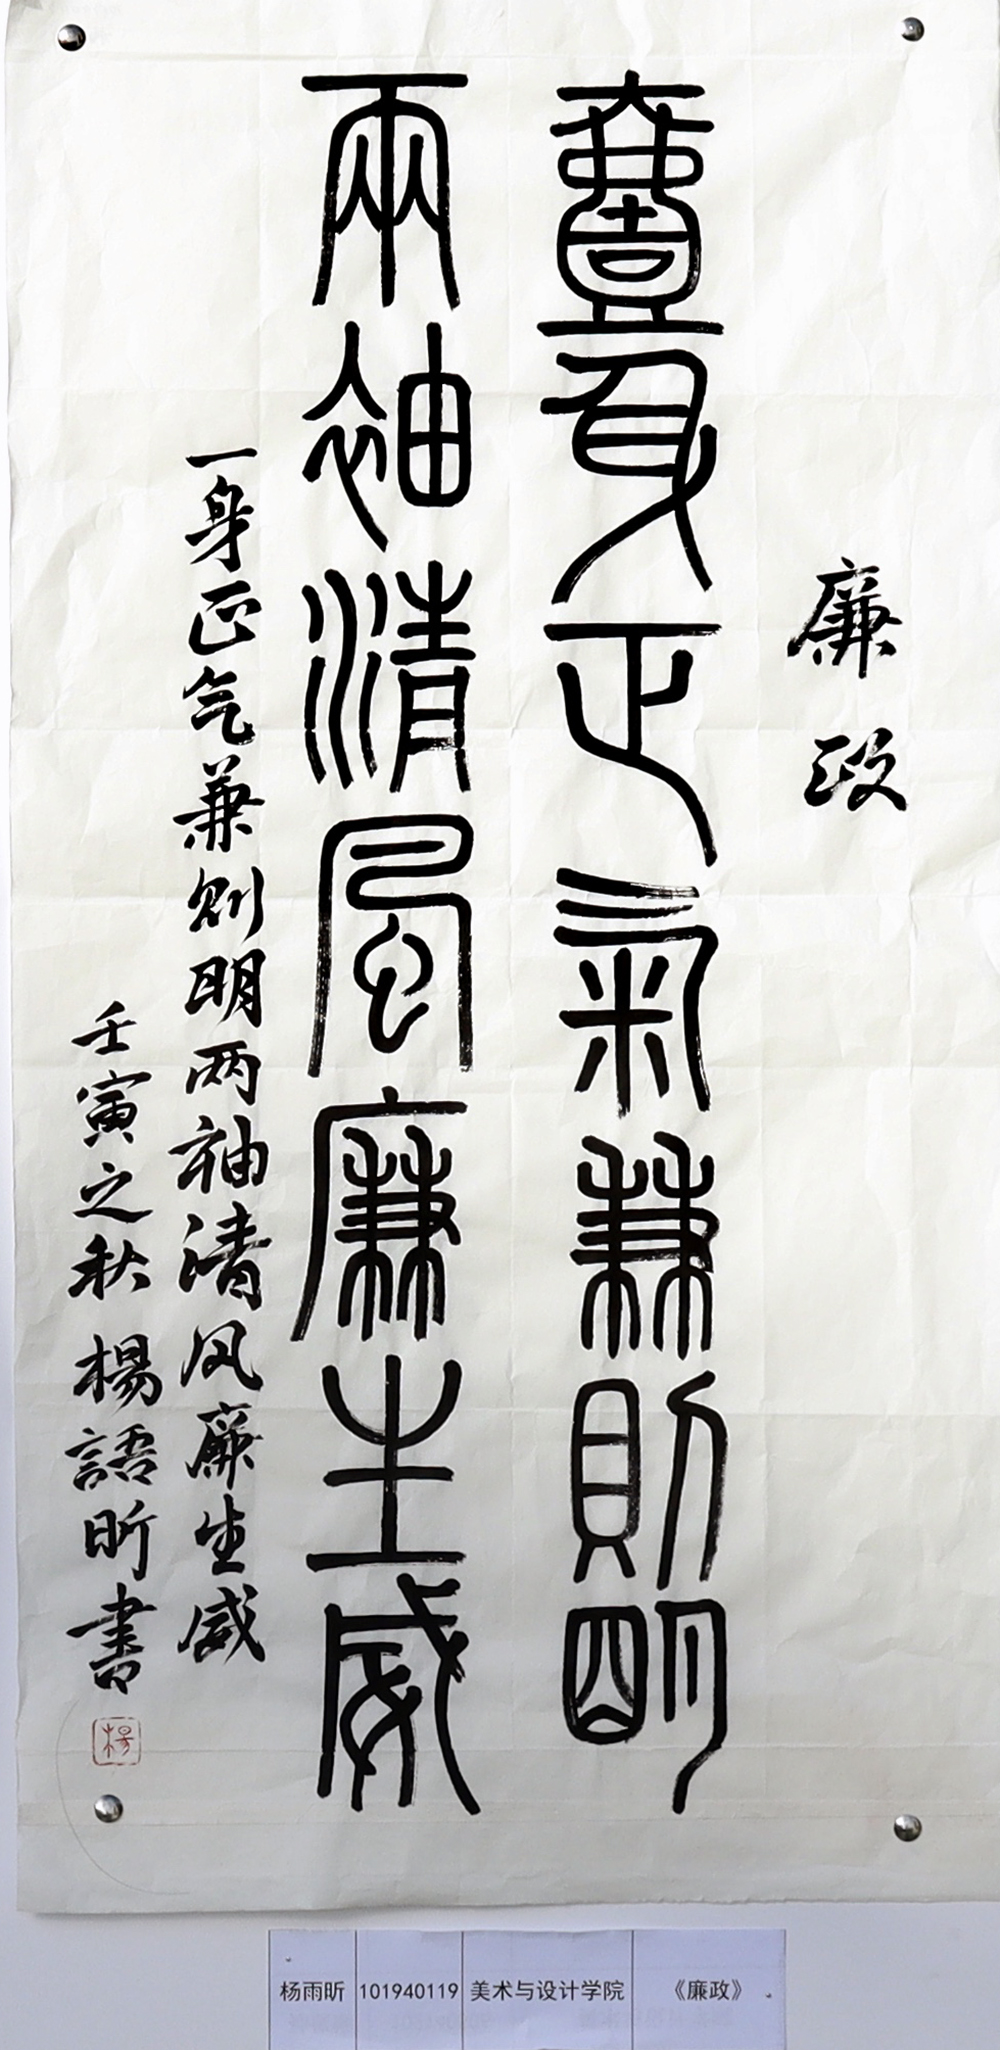 廉政
壹身正氣兼則明
兩袖清風廉生威
一身正气兼则明两袖清风廉生威
壬寅之秋楊語昕書
楊
杨雨昕 101940119 美术与设计学院 《廉政》